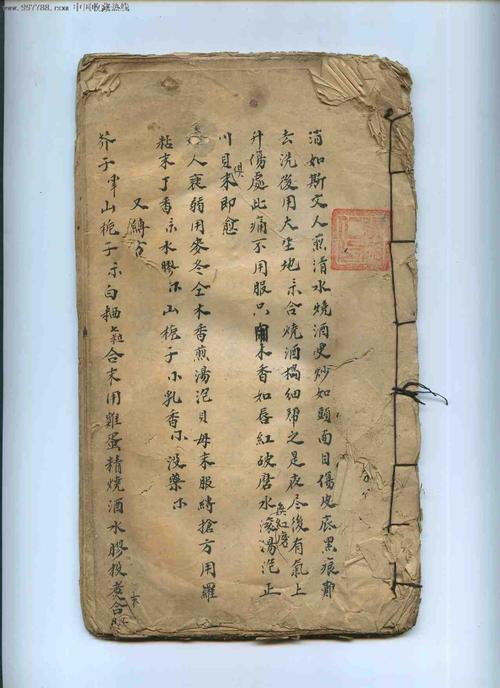 www.997788.com 中国收藏热线
消如斯文人煎清水燒酒更炒如頭面目傷皮底黑痕鄭
去洗後用大生地示合燒酒搗細帮之是夜尽後有氣上
升傷處此痛不用服只用木香如唇紅破磨水滚湯泡正
换紅唇
川貝末即愈
俱
人衰弱用麥冬全木香煎湯泡貝母末服縛搶方用羅
粘末丁香示水膠尔山梔子小乳香尔没藥尔
又縛方
芥子半山梔子示白麯合末用雞蛋精燒酒水膠投煮合